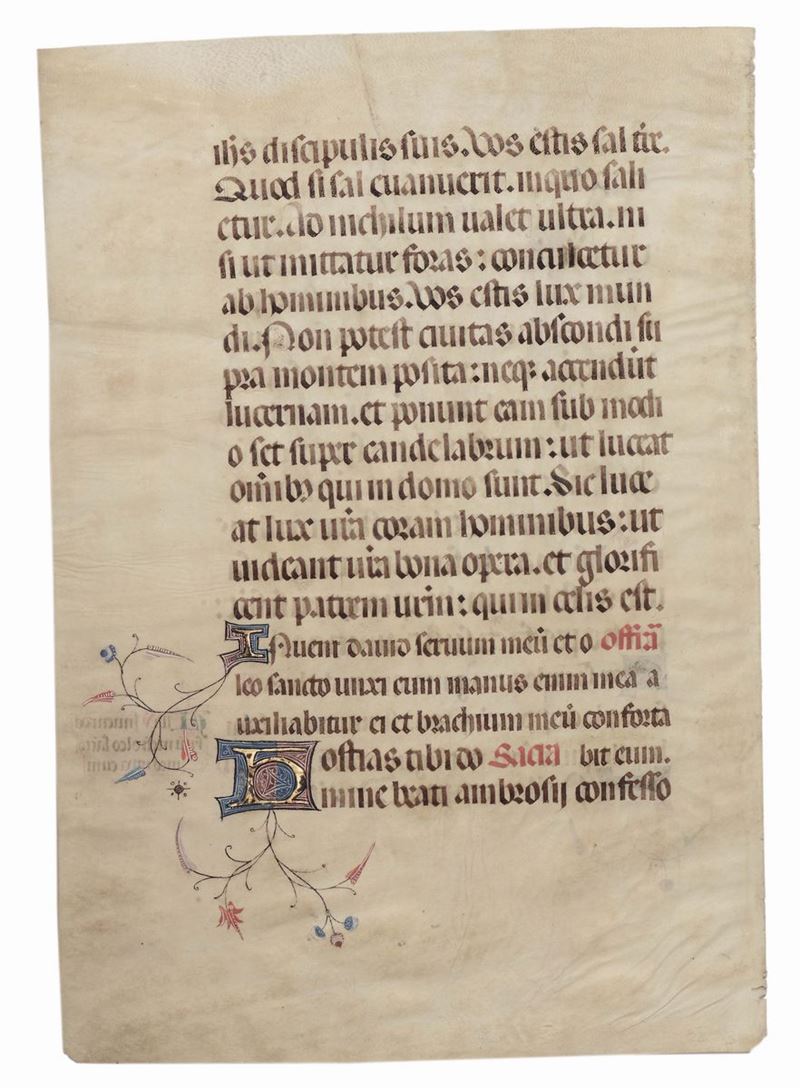 ihs discipulis suis. Vos estis sal tr̄e.
Quod si sal euanuerit. in quo sali
etur. Ad nichilum ualet ultra. ni
si ut mittatur foras: conculcetur
ab hominibus. Vos estis lux mun
di. Non potest ciuitas abscondi su
pra montem posita: neqꝫ accendūt
lucernam. et ponunt eam sub modi
o set super candelabrum: ut luceat
om̄ibꝫ qui in domo sunt. Sic luce
at lux ur̄a coram hominibus: ut
uideant ur̄a bona opera. et glorifi
cent patrem urm̄: qui in celis est.
Inueni dauid seruum meū et o offr̄a
leo sancto unxi eum manus enim mea a
uxiliabitur ei et brachium meū conforta
Hostias tibi do Sacra bit eum.
mine beati ambrosij confesso